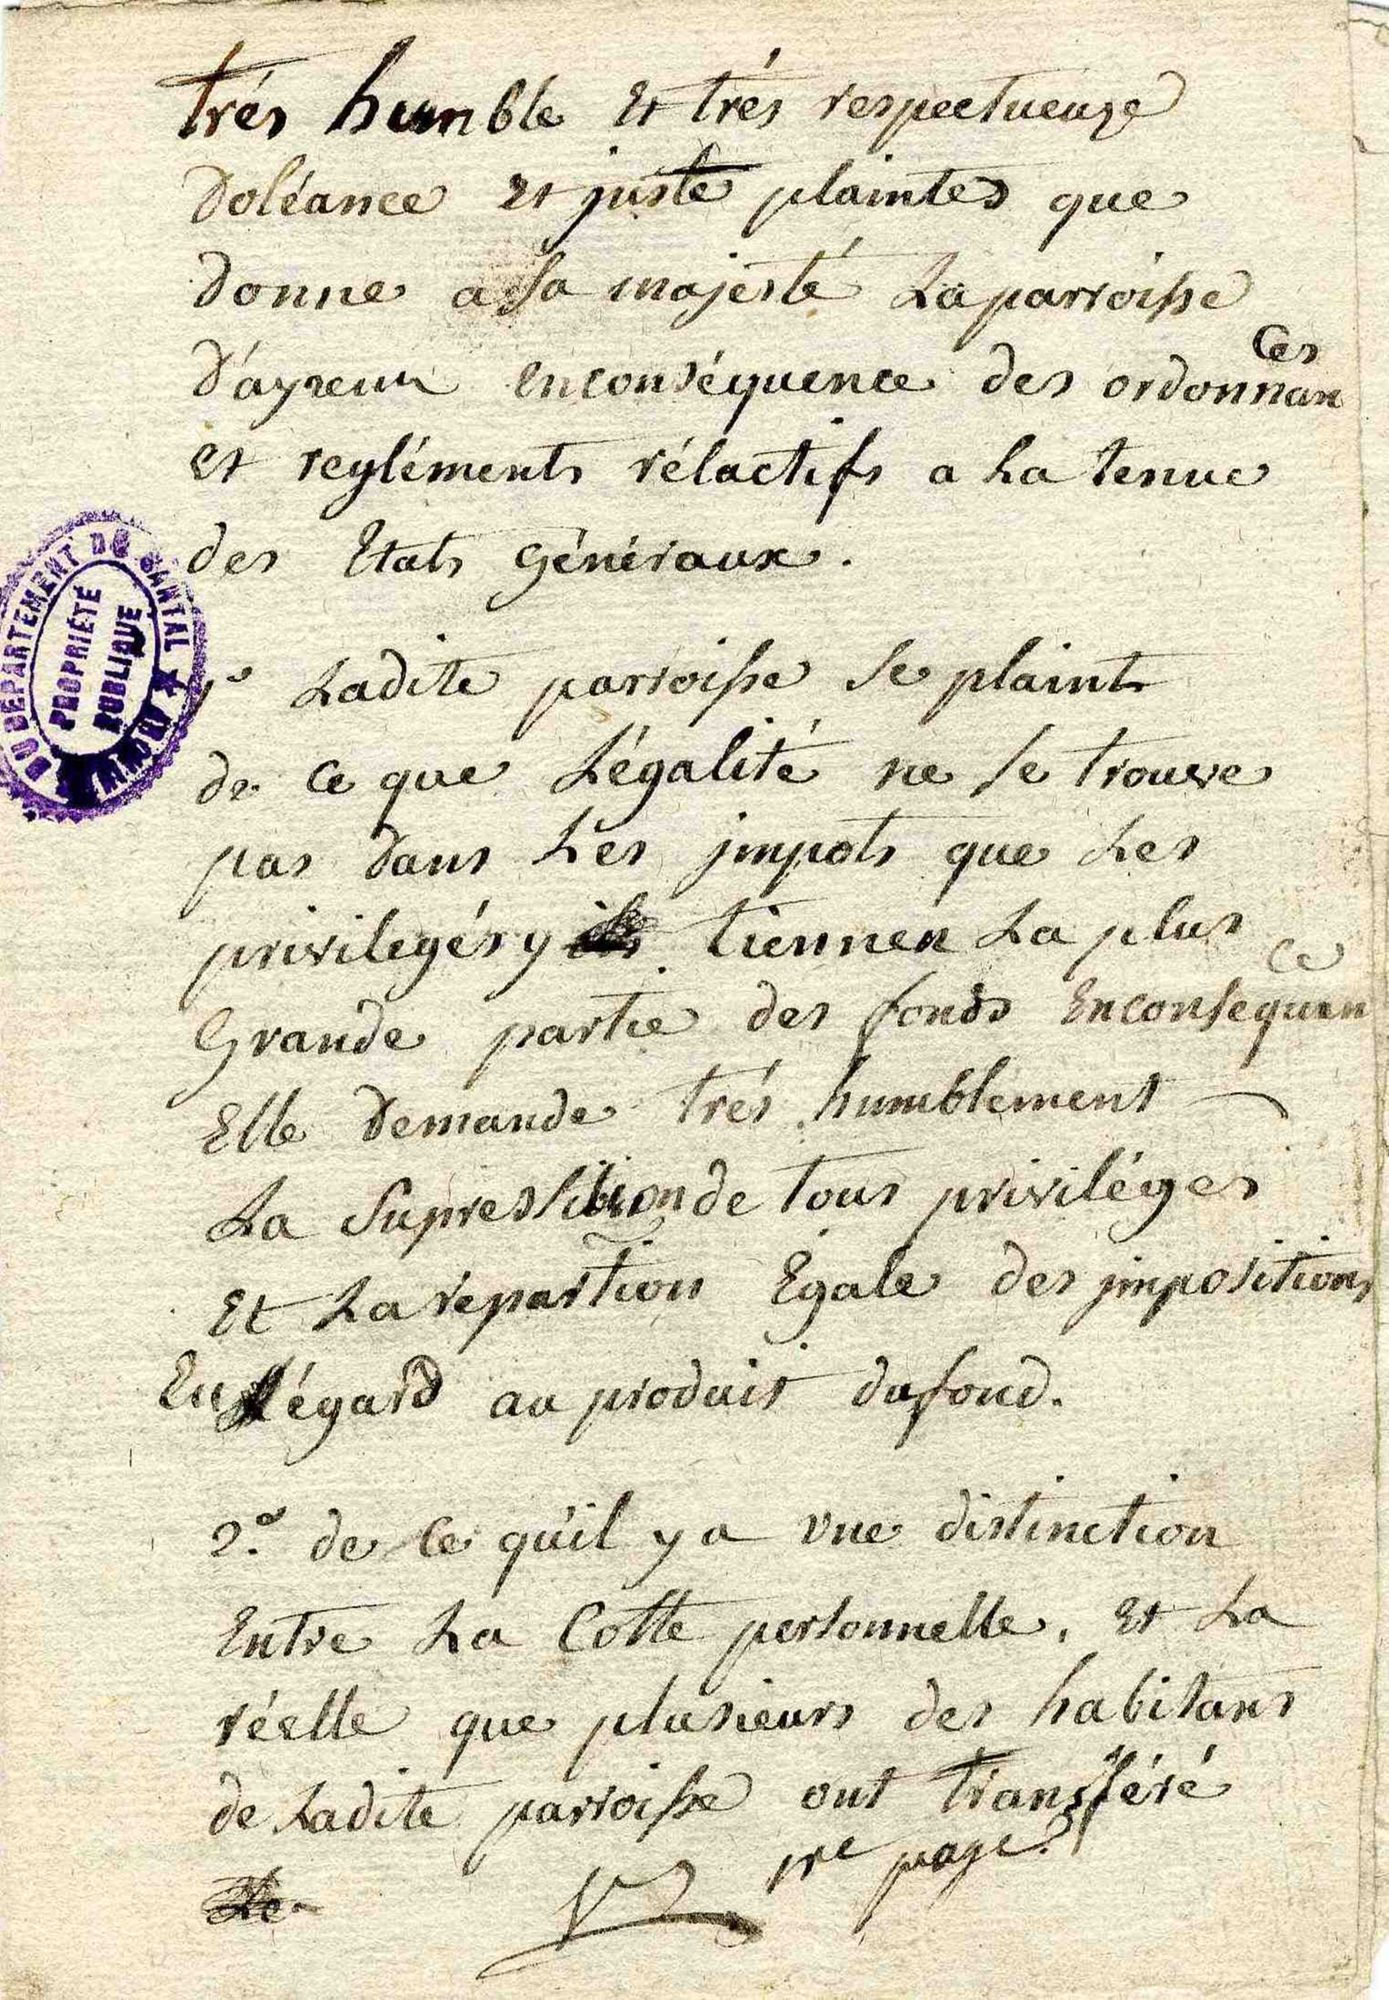 trés humble Et trés respectueuze
Doléance et juste plaintes que
donne a Sa majesté La parroisse
D'ayreux enconséquence des ordonnan
ces
et regléments rélactifs a La tenue
des Etats Généraux.
1º Ladite parroisse se plaint
de ce que L'égalité ne se trouve
pas dans Les jmpots que Les
privilegés y tiennen La plus
Grande partie des fonds Enconsequen
ce
Elle Demande trés humblement
La Supression de tous priviléges
Et La répartion Egale des jmpositions
Eu égard au produit du fond.
2º. de ce qu'il y a vne distinction
Entre La Cotte personnelle, et La
réelle que plusieurs des habitans
de Ladite parroisse ont transféré
pre page.
DU DEPARTEMENT DU CANTAL ★ ARCHIVES
PROPRIÉTÉ
PUBLIQUE